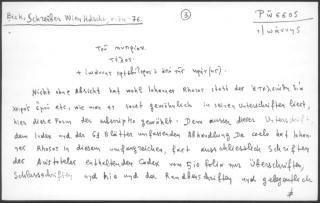 Beck, Schreiber Wien Hdschr., p. 74-76. ③ Ῥῶσσος
Ἰωάννης
Τοῦ
τέλος
+ Ἰωάννης
Nicht ohne Absicht hat wohl Johannes Rhosos statt der
χειρός ἐμοῦ etc., wie man es sonst gewöhnlich in seinen Unterschriften liest,
hier diese Form der subscriptio gewählt. Denn ausser dieser Unterschrift,
dem Index und der 61 Blätter umfassenden Abhandlung De caelo hat Johan-
nes Rhosos in diesem umfangreichen, fast ausschliesslich Schriften
des Aristoteles enthaltenden Codex von 510 Folia nur Überschriften,
Schlussschriften und hie und da Randüberschriften und gelegentlich